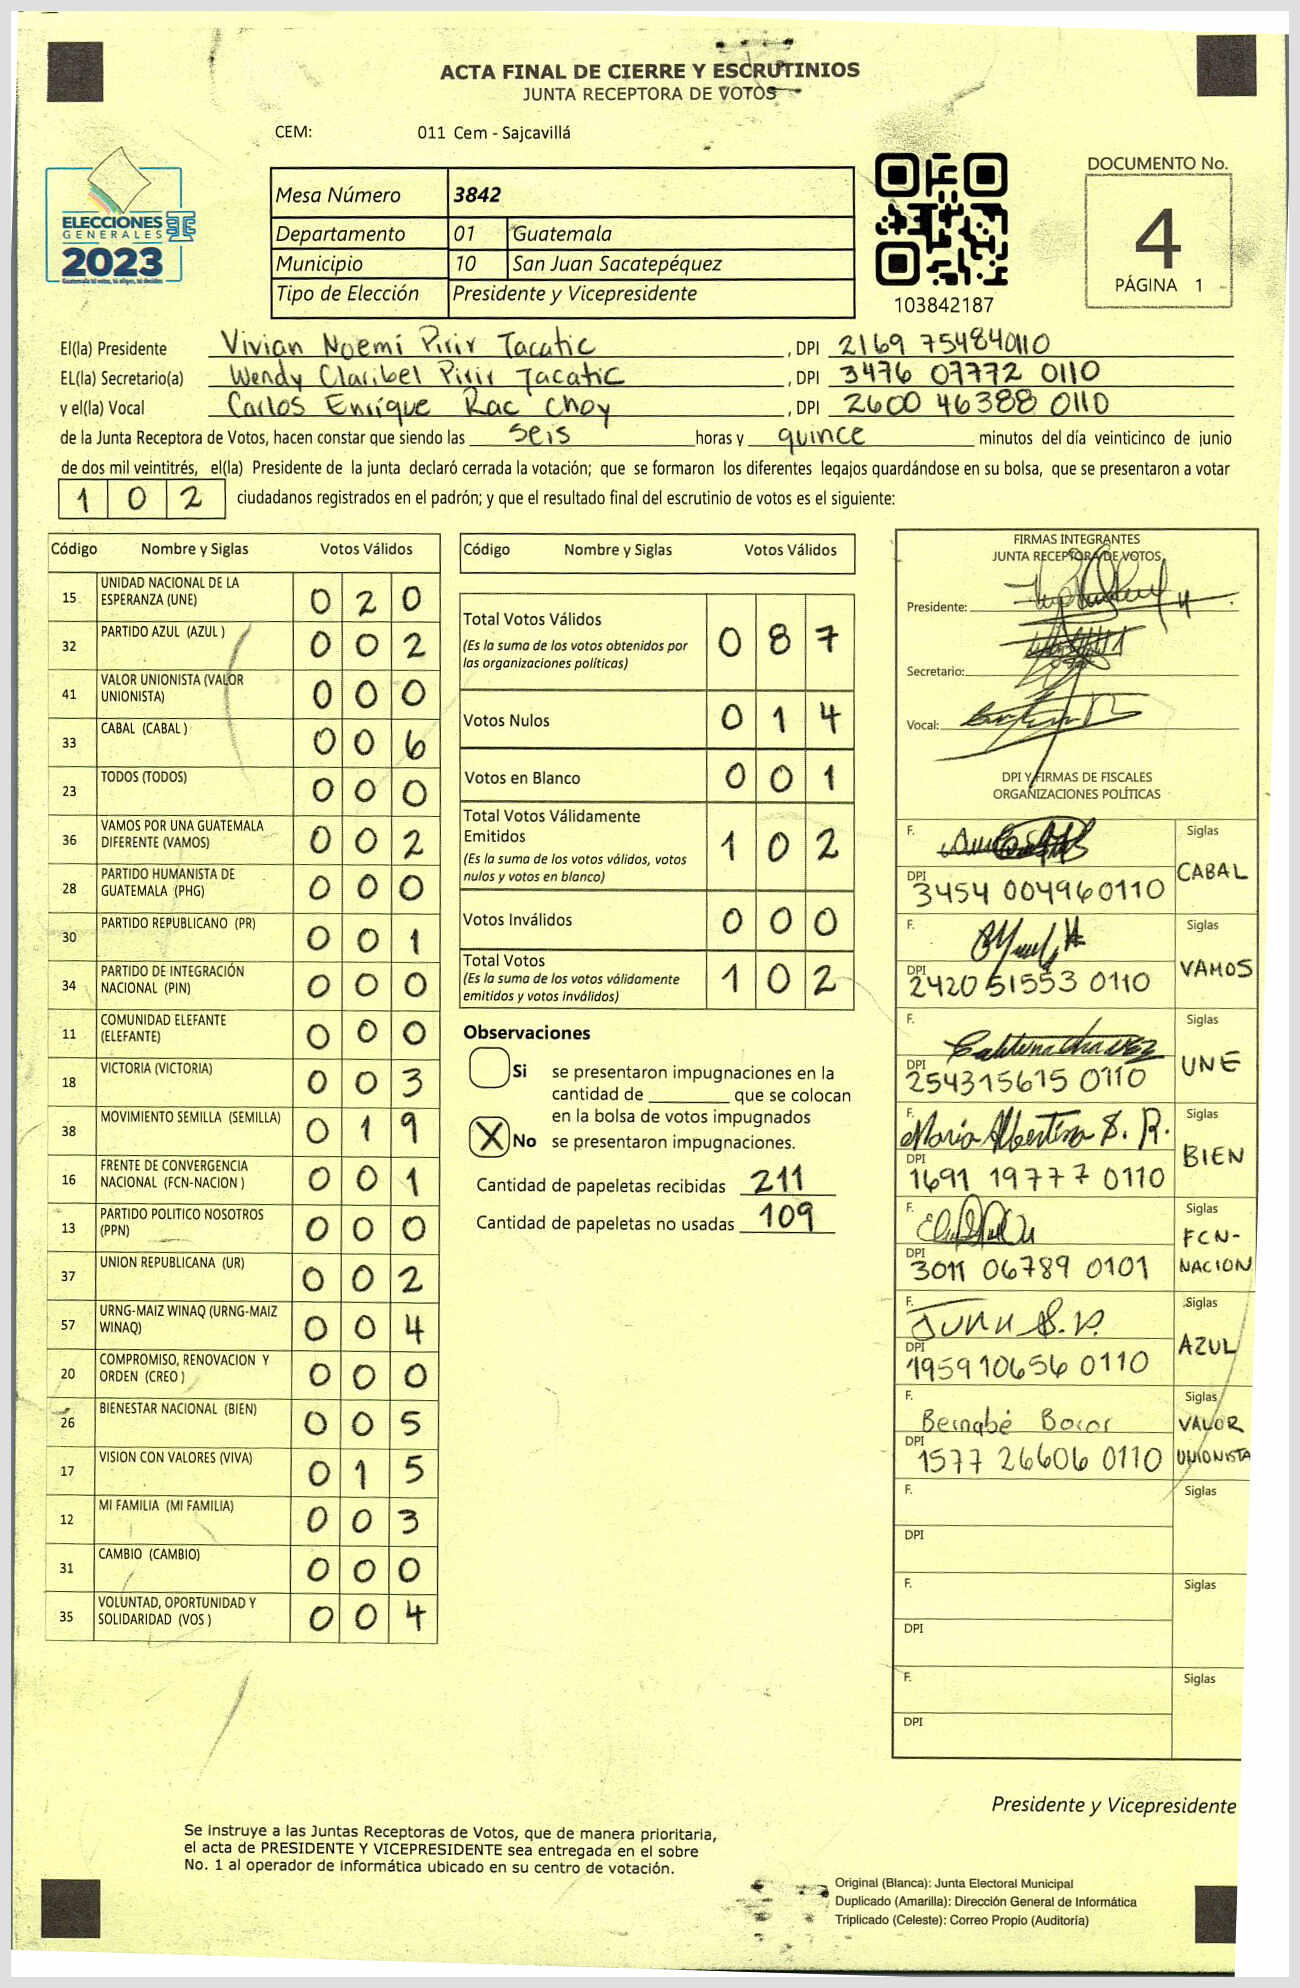 ACTA FINAL DE CIERRE Y ESCRUTINIOS
JUNTA RECEPTORA DE VOTOS
CEM: 011 Cem - Sajcavillá
ELECCIONES
GENERALES
2023
Mesa Número 3842
Departamento 01 Guatemala
Municipio 10 San Juan Sacatepéquez
Tipo de Elección Presidente y Vicepresidente
103842187
DOCUMENTO No.
4
PÁGINA 1
El(la) Presidente Vivian Noemi Pirir Tacatic , DPI 2169 754840110
EL(la) Secretario(a) Wendy Claribel Pirir Tacatic , DPI 3476 07772 0110
y el(la) Vocal Carlos Enrique Rac Choy , DPI 2600 46388 0110
de la Junta Receptora de Votos, hacen constar que siendo las seis horas y quince minutos del día veinticinco de junio
de dos mil veintitrés, el(la) Presidente de la junta declaró cerrada la votación; que se formaron los diferentes legajos guardándose en su bolsa, que se presentaron a votar
1 0 2 ciudadanos registrados en el padrón; y que el resultado final del escrutinio de votos es el siguiente:
Código Nombre y Siglas Votos Válidos
15 UNIDAD NACIONAL DE LA ESPERANZA (UNE) 0 2 0
32 PARTIDO AZUL (AZUL ) 0 0 2
41 VALOR UNIONISTA (VALOR UNIONISTA) 0 0 0
33 CABAL (CABAL ) 0 0 6
23 TODOS (TODOS) 0 0 0
36 VAMOS POR UNA GUATEMALA DIFERENTE (VAMOS) 0 0 2
28 PARTIDO HUMANISTA DE GUATEMALA (PHG) 0 0 0
30 PARTIDO REPUBLICANO (PR) 0 0 1
34 PARTIDO DE INTEGRACIÓN NACIONAL (PIN) 0 0 0
11 COMUNIDAD ELEFANTE (ELEFANTE) 0 0 0
18 VICTORIA (VICTORIA) 0 0 3
38 MOVIMIENTO SEMILLA (SEMILLA) 0 1 9
16 FRENTE DE CONVERGENCIA NACIONAL (FCN-NACION ) 0 0 1
13 PARTIDO POLITICO NOSOTROS (PPN) 0 0 0
37 UNION REPUBLICANA (UR) 0 0 2
57 URNG-MAIZ WINAQ (URNG-MAIZ WINAQ) 0 0 4
20 COMPROMISO, RENOVACION Y ORDEN (CREO ) 0 0 0
26 BIENESTAR NACIONAL (BIEN) 0 0 5
17 VISION CON VALORES (VIVA) 0 1 5
12 MI FAMILIA (MI FAMILIA) 0 0 3
31 CAMBIO (CAMBIO) 0 0 0
35 VOLUNTAD, OPORTUNIDAD Y SOLIDARIDAD (VOS ) 0 0 4
Código Nombre y Siglas Votos Válidos
Total Votos Válidos 0 8 7
(Es la suma de los votos obtenidos por
las organizaciones políticas)
Votos Nulos 0 1 4
Votos en Blanco 0 0 1
Total Votos Válidamente
Emitidos 1 0 2
(Es la suma de los votos válidos, votos
nulos y votos en blanco)
Votos Inválidos 0 0 0
Total Votos 1 0 2
(Es la suma de los votos válidamente
emitidos y votos inválidos)
Observaciones
Si se presentaron impugnaciones en la
cantidad de ________ que se colocan
en la bolsa de votos impugnados
X No se presentaron impugnaciones.
Cantidad de papeletas recibidas 211
Cantidad de papeletas no usadas 109
FIRMAS INTEGRANTES
JUNTA RECEPTORA DE VOTOS
Presidente:
Secretario:
Vocal:
DPI Y FIRMAS DE FISCALES
ORGANIZACIONES POLÍTICAS
F. Siglas
DPI 3454 004960110 CABAL
F. Siglas
DPI 2420 51553 0110 VAMOS
F. Siglas
DPI 254315615 0110 UNE
F. Maria Albertina S. R. Siglas
DPI 1691 19777 0110 BIEN
F. Siglas
DPI 3011 06789 0101 FCN-NACION
F. Siglas
DPI 195910656 0110 AZUL
F. Bernabé Bocor Siglas
DPI 1577 26606 0110 VALOR UNIONISTA
F. Siglas
DPI
F. Siglas
DPI
F. Siglas
DPI
Presidente y Vicepresidente
Se instruye a las Juntas Receptoras de Votos, que de manera prioritaria,
el acta de PRESIDENTE Y VICEPRESIDENTE sea entregada en el sobre
No. 1 al operador de informática ubicado en su centro de votación.
Original (Blanca): Junta Electoral Municipal
Duplicado (Amarilla): Dirección General de Informática
Triplicado (Celeste): Correo Propio (Auditoría)